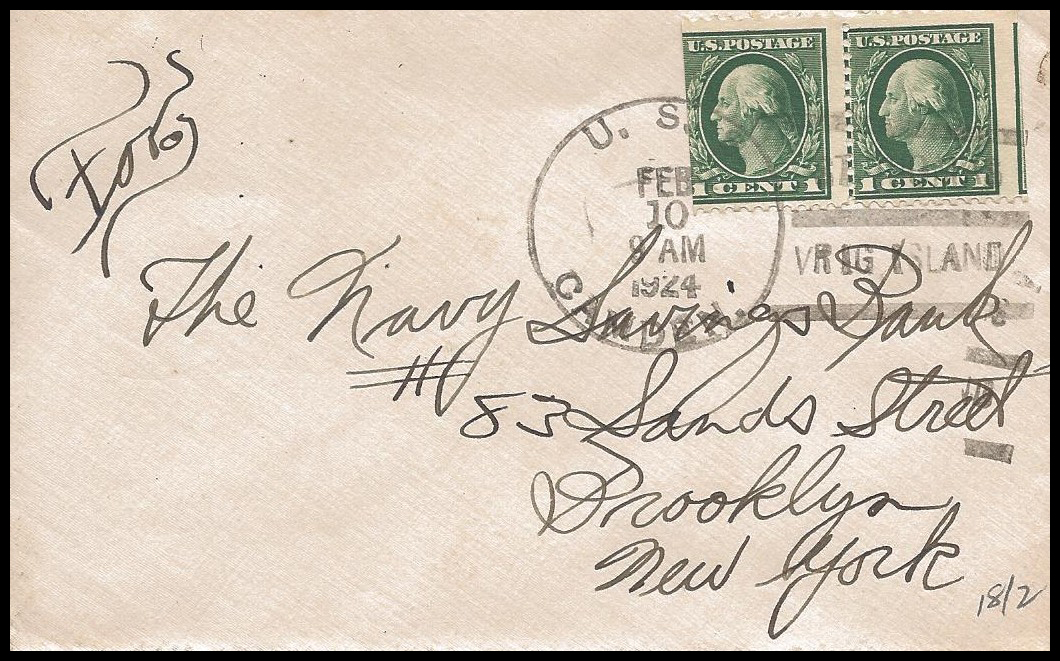 U.S.POSTAGE U.S.POSTAGE
1 CENT 1 1 CENT 1
U. S.
FEB
10
8 AM
1924
CAMDEN
VRIG ISLAND
The Navy Savings Bank
# 83 Sands Street
Brooklyn
New York
18/2